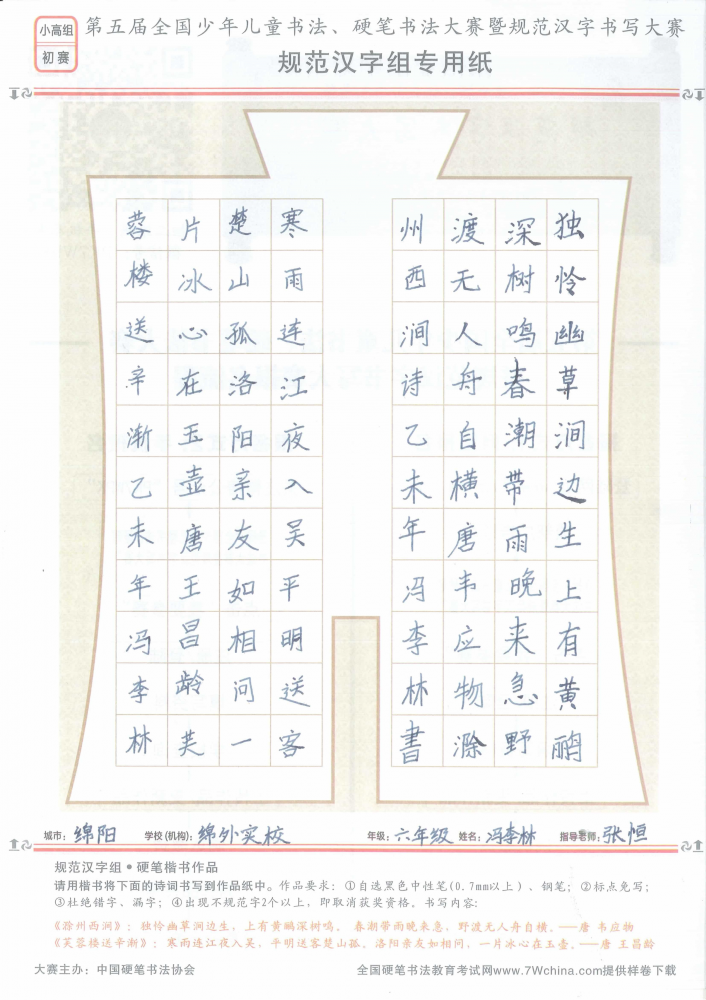 小高组
初赛
第五届全国少年儿童书法、硬笔书法大赛暨规范汉字书写大赛
规范汉字组专用纸
独怜幽草涧边生上有黄鹂
深树鸣春潮带雨晚来急野
渡无人舟自横唐韦应物滁
州西涧诗乙未年冯李林書
寒雨连江夜入吴平明送客
楚山孤洛阳亲友如相问一
片冰心在玉壶唐王昌龄芙
蓉楼送辛渐乙未年冯李林
城市：绵阳 学校(机构)：绵外实校 年级：六年级 姓名：冯李林 指导老师：张恒
规范汉字组●硬笔楷书作品
请用楷书将下面的诗词书写到作品纸中。作品要求：①自选黑色中性笔(0.7mm以上)、钢笔；②标点免写；
③杜绝错字、漏字；④出现不规范字2个以上，即取消获奖资格。书写内容：
《滁州西涧》：独怜幽草涧边生，上有黄鹂深树鸣。 春潮带雨晚来急，野渡无人舟自横。——唐 韦应物
《芙蓉楼送辛渐》：寒雨连江夜入吴，平明送客楚山孤。洛阳亲友如相问，一片冰心在玉壶。——唐 王昌龄
大赛主办：中国硬笔书法协会 全国硬笔书法教育考试网www.7Wchina.com提供样卷下载